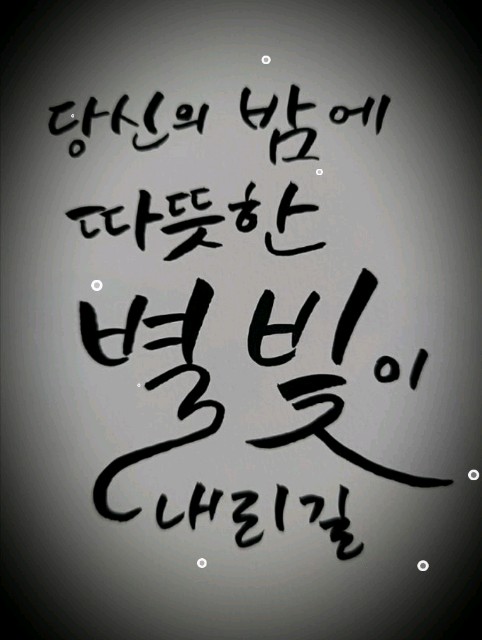 당신의 밤에
따뜻한
별빛이
내리길